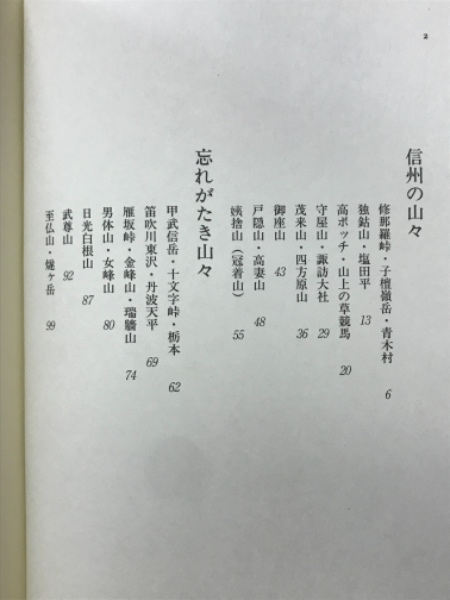 2
信州の山々
修那羅峠・子檀嶺岳・青木村 6
独鈷山・塩田平 13
高ボッチ・山上の草競馬 20
守屋山・諏訪大社 29
茂来山・四方原山 36
御座山 43
戸隠山・高妻山 48
姨捨山（冠着山） 55
忘れがたき山々
甲武信岳・十文字峠・栃本 62
笛吹川東沢・丹波天平 69
雁坂峠・金峰山・瑞牆山 74
男体山・女峰山 80
日光白根山 87
武尊山 92
至仏山・燧ヶ岳 99